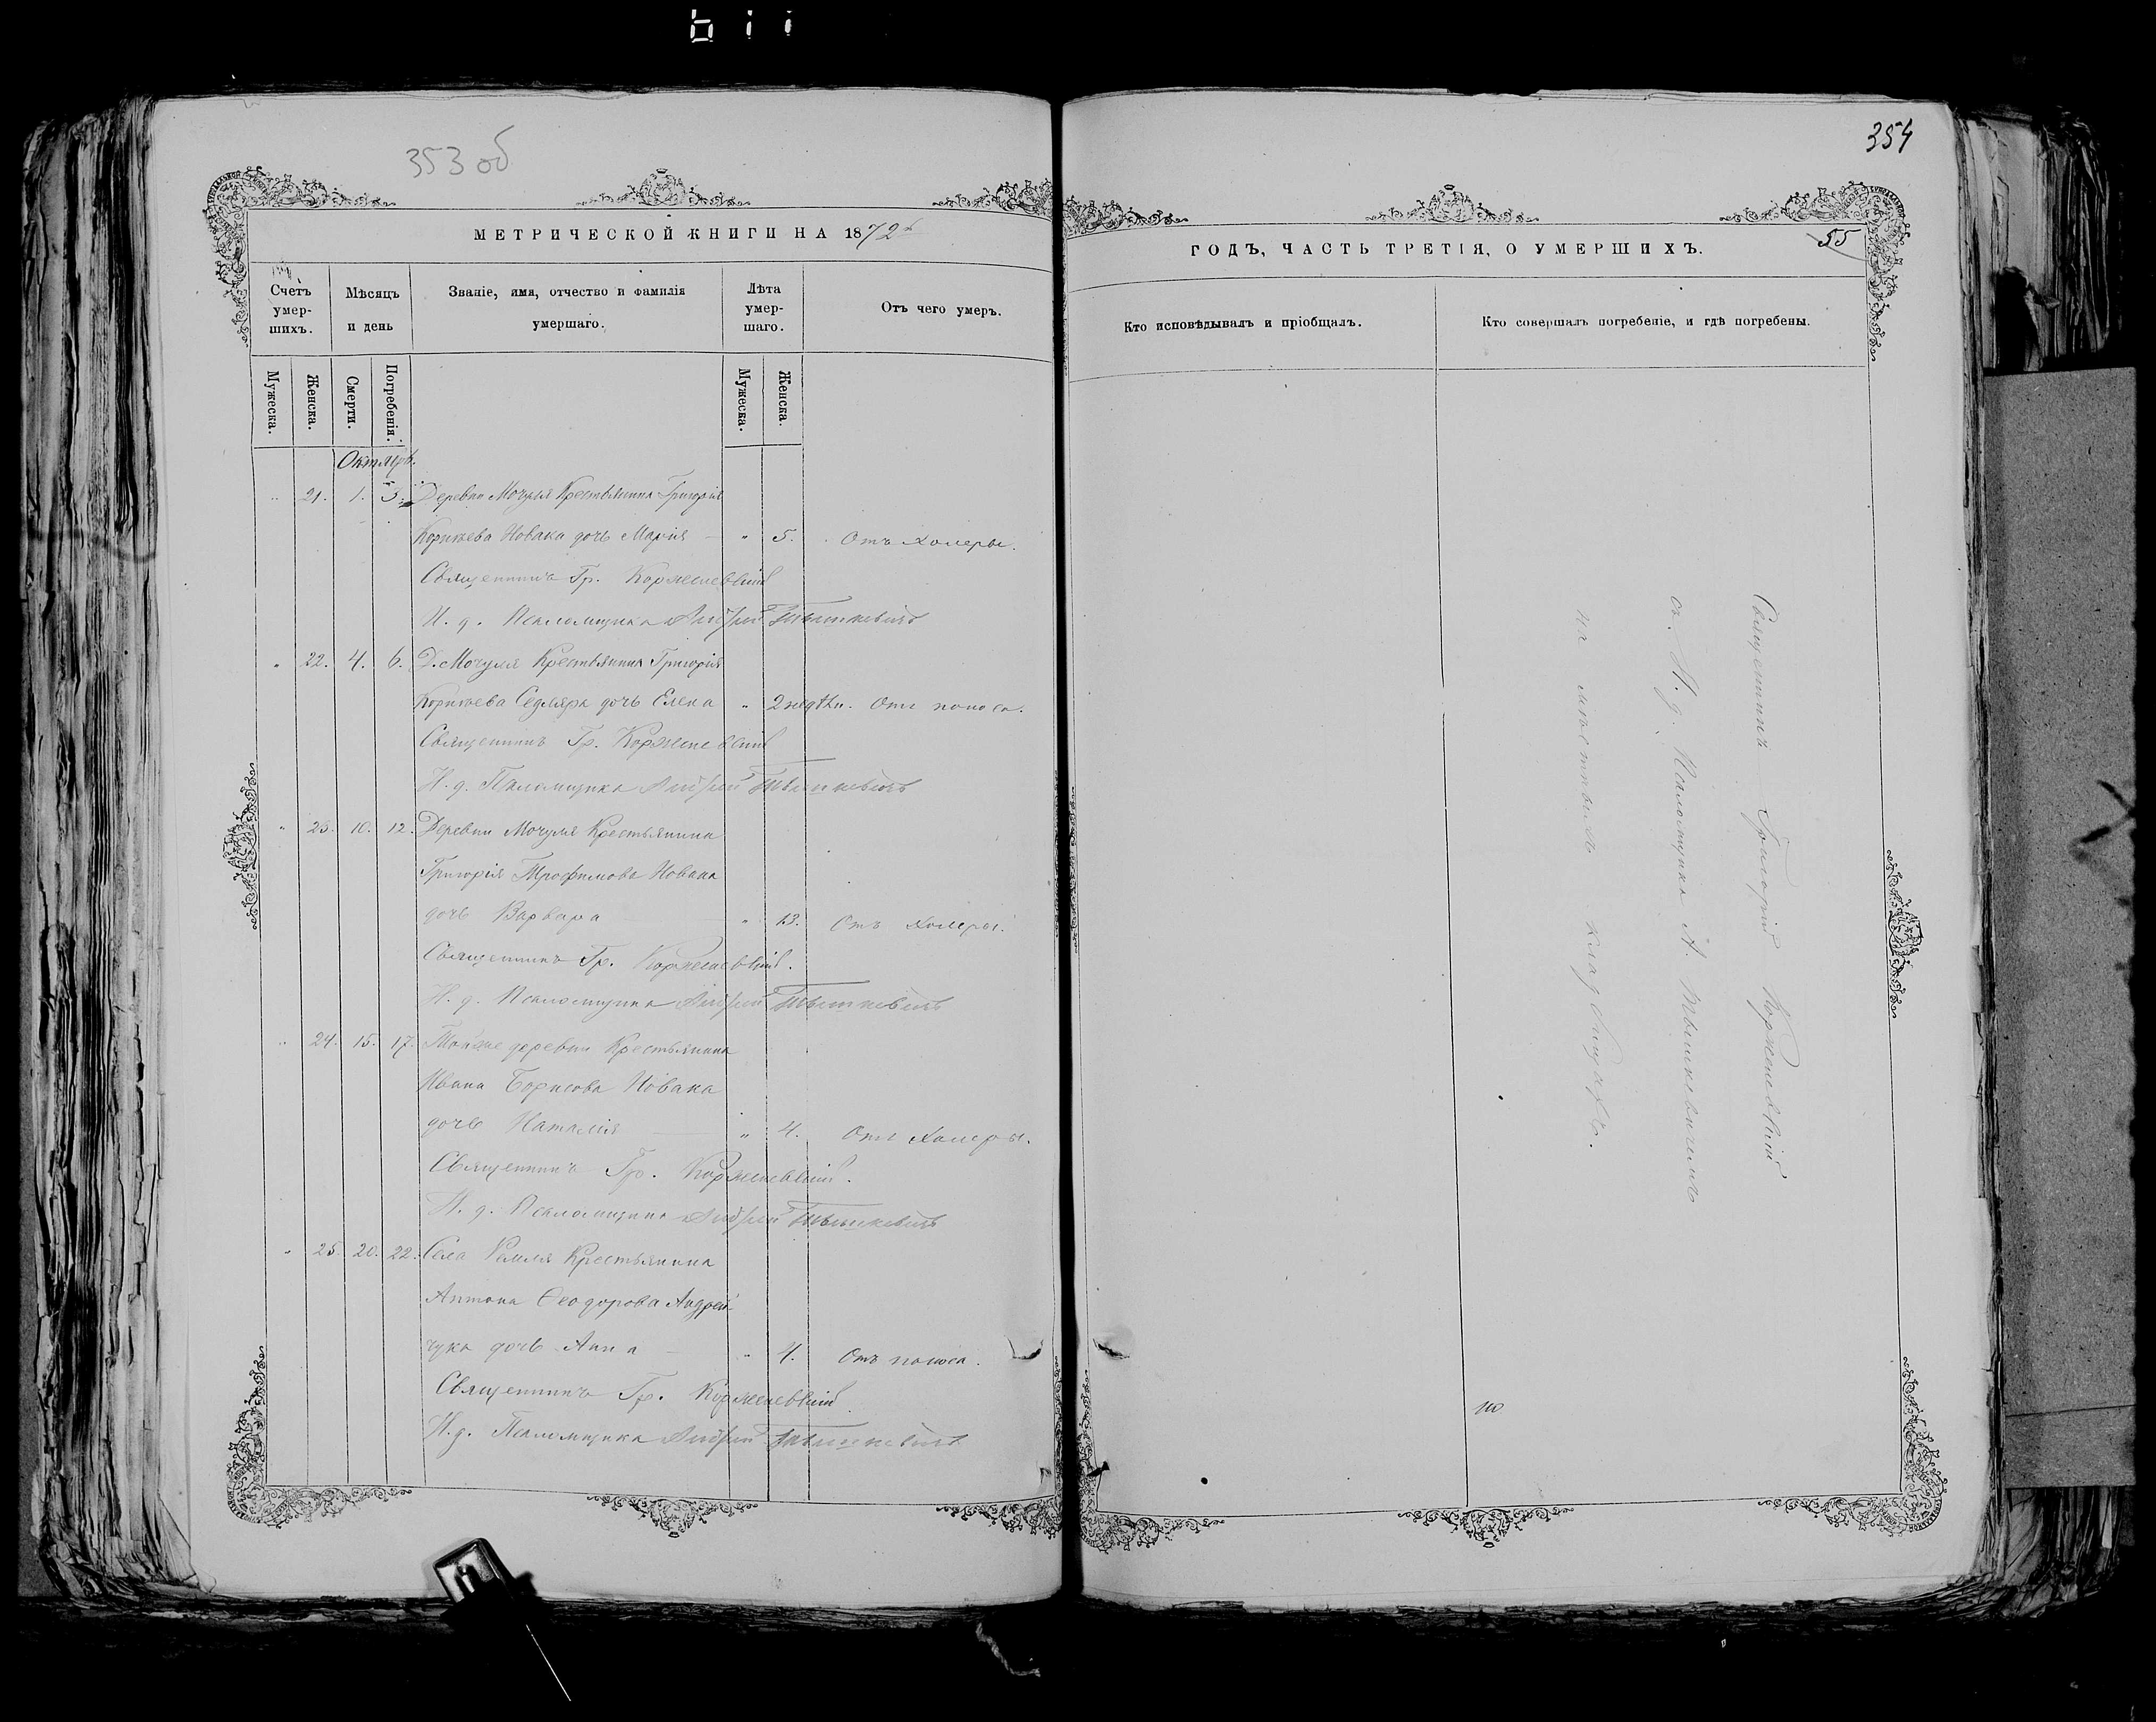 353 об
МЕТРИЧЕСКОЙ КНИГИ НА 1872
Счетъ умер-шихъ.
Мѣсяцъ и день
Званіе, имя, отчество и фамилія умершаго.
Лѣта умер-шаго.
Отъ чего умеръ.
Мужеска.
Женска.
Смерти.
Погребенія.
Мужеска.
Женска.
Октябрь.
" 21. 1. 3. Деревни Мочуля Крестьянина Григорія
Корнѣева Новака дочь Марія — " 5. Отъ холеры.
Священникъ Гр. Корженевскій
И. д. Псаломщика Андрей
" 22. 4. 6. Д. Мочуля Крестьянина Григорія
Корнѣева Седляра дочь Елена " 2 недѣли. Отъ поноса.
Священникъ Гр. Корженевскій
И. д. Псаломщика Андрей
" 23. 10. 12. Деревни Мочуля Крестьянина
Григорія Трофимова Новака
дочь Варвара — " 13. Отъ холеры.
Священникъ Гр. Корженевскій.
И. д. Псаломщика Андрей
" 24. 15. 17. Тойже деревни Крестьянина
Ивана Борисова Новака
дочь Наталія — " 4. Отъ холеры.
Священникъ Гр. Корженевскій.
И. д. Псаломщика Андрей
" 25. 20. 22. Села Крестьянина
Антона Ѳеодорова Андрей
чука дочь Анна — " 4. Отъ поноса.
Священникъ Гр. Корженевскій
И. д. Псаломщика Андрей
354
ГОДЪ, ЧАСТЬ ТРЕТІЯ, О УМЕРШИХЪ.
55
Кто исповѣдывалъ и пріобщалъ.
Кто совершалъ погребеніе, и гдѣ погребены.
Священникъ Григорій Корженевскій
съ И. д. Псаломщика А.
на мѣстныхъ кладбищахъ.